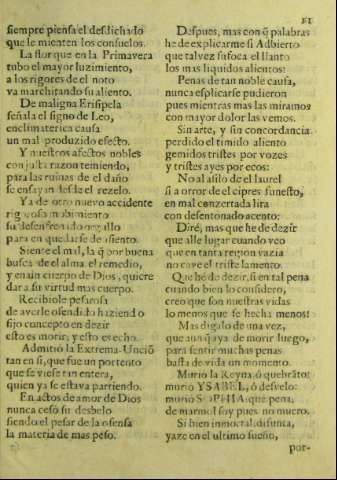 siempre piensa el desdichado
que le mienten los consuelos.
La flor que en la Primavera
tubo el mayor luzimiento,
a los rigores de el noto
va marchitando su aliento.
De maligna Erisipela
señala el signo de Leo,
enclimaterica causa
un mal produzido efecto.
Y nuestros afectos nobles
con justa razon temiendo,
para las ruinas de el daño
se ensayan desde el rezelo.
Ya de otro nuevo accidente
rigoroso mobimiento
su desenfrenado orgullo
para en quedarse de asiento.
Siente el mal, la q̃ por buena
busca de el alma el remedio,
y en un cuerpo de Dios, quiere
dar a su virtud mas cuerpo.
Recibiole pesarosa
de averle ofendido haziendo
fijo concepto en dezir
esto es morir, y esto es echo.
Admitiò la Extrema-Unciõ
tan en sí, que fue un portento
que se viese tan entera,
quien ya se estava partiendo.
En actos de amor de Dios
nunca cesó su desbelo
siendo el pesar de la ofensa
la materia de mas peso.
21
Despues, mas con q̃ palabras
he de explicarme si Adbierto
que talvez sufoca el llanto
los mas liquidos alientos:
Penas de tan noble causa,
nunca esplicarse pudieron
pues mientras mas las miramos
con mayor dolor las vemos.
Sin arte, y sin concordancia
perdido el timido aliento
gemidos tristes por vozes
y tristes ayes por ecos:
No al asilo de el laurel
si a orror de el cipres funesto,
en mal conzertada lira
con desentonado acento:
Diré, mas que he de dezir
que alle lugar cuando veo
que en tanta region vazia
no cave el triste lamento.
Que he de dezir, si en tal pena
cuando bien lo considero,
creo que son nuestras vidas
lo menos que se hecha menos!
Mas digalo de una vez,
que aunq̃ aya de morir luego,
para sentir muchas penas
basta de vida un momento.
Murio la Reyna, ò quebrãto;
murio YSABEL, ò desvelo:
murio SOPHIA, que pena,
de marmol soy pues no muero.
Si bien inmortal, difunta,
yaze en el ultimo sueño,
por-